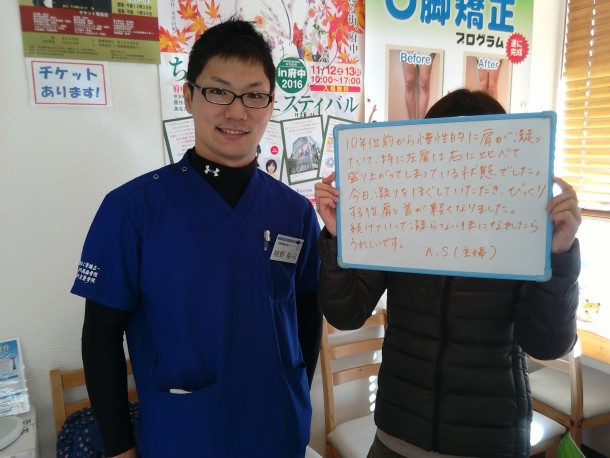 チケット
あります!
in府中
2016
11/12㊏13㊐
10:00~17:00
入場無料
スティバル
O脚矯正
プログラム
遂に
完成
Before
After
10年位前から慢性的に肩が凝っ
ていて、特に左肩は右に比べて
盛り上がってしまっている状態でした。
今日、凝りをほぐしていただき、びっくり
する位肩と首が軽くなりました。
続けていって凝らない体になれたら
うれしいです。
A.S(主婦)